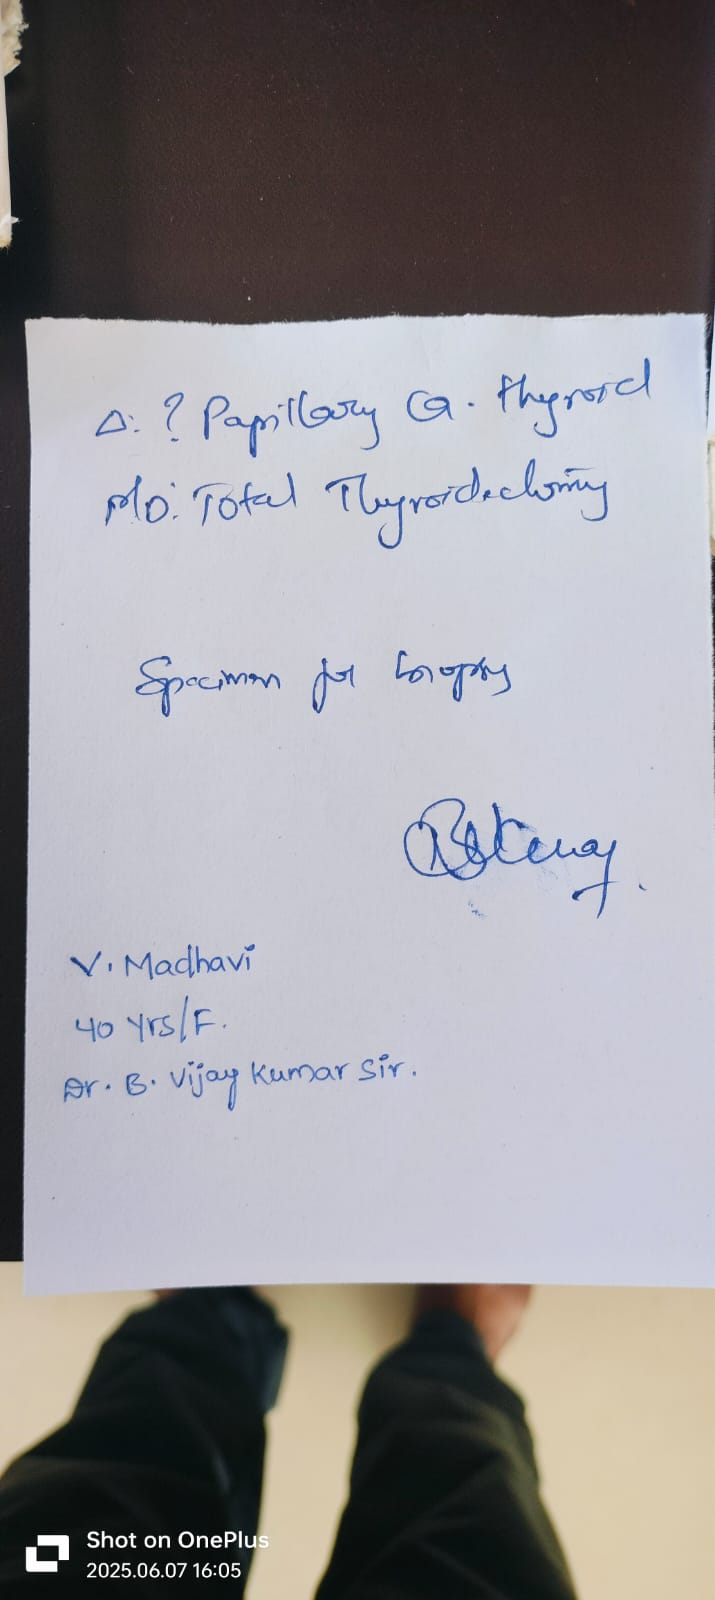 Δ: ? Papillary Ca. thyroid
P/O: Total Thyroidectomy
Specimen for biopsy
V. Madhavi
40 Yrs/F.
Dr. B. Vijay Kumar Sir.
Shot on OnePlus
2025.06.07 16:05